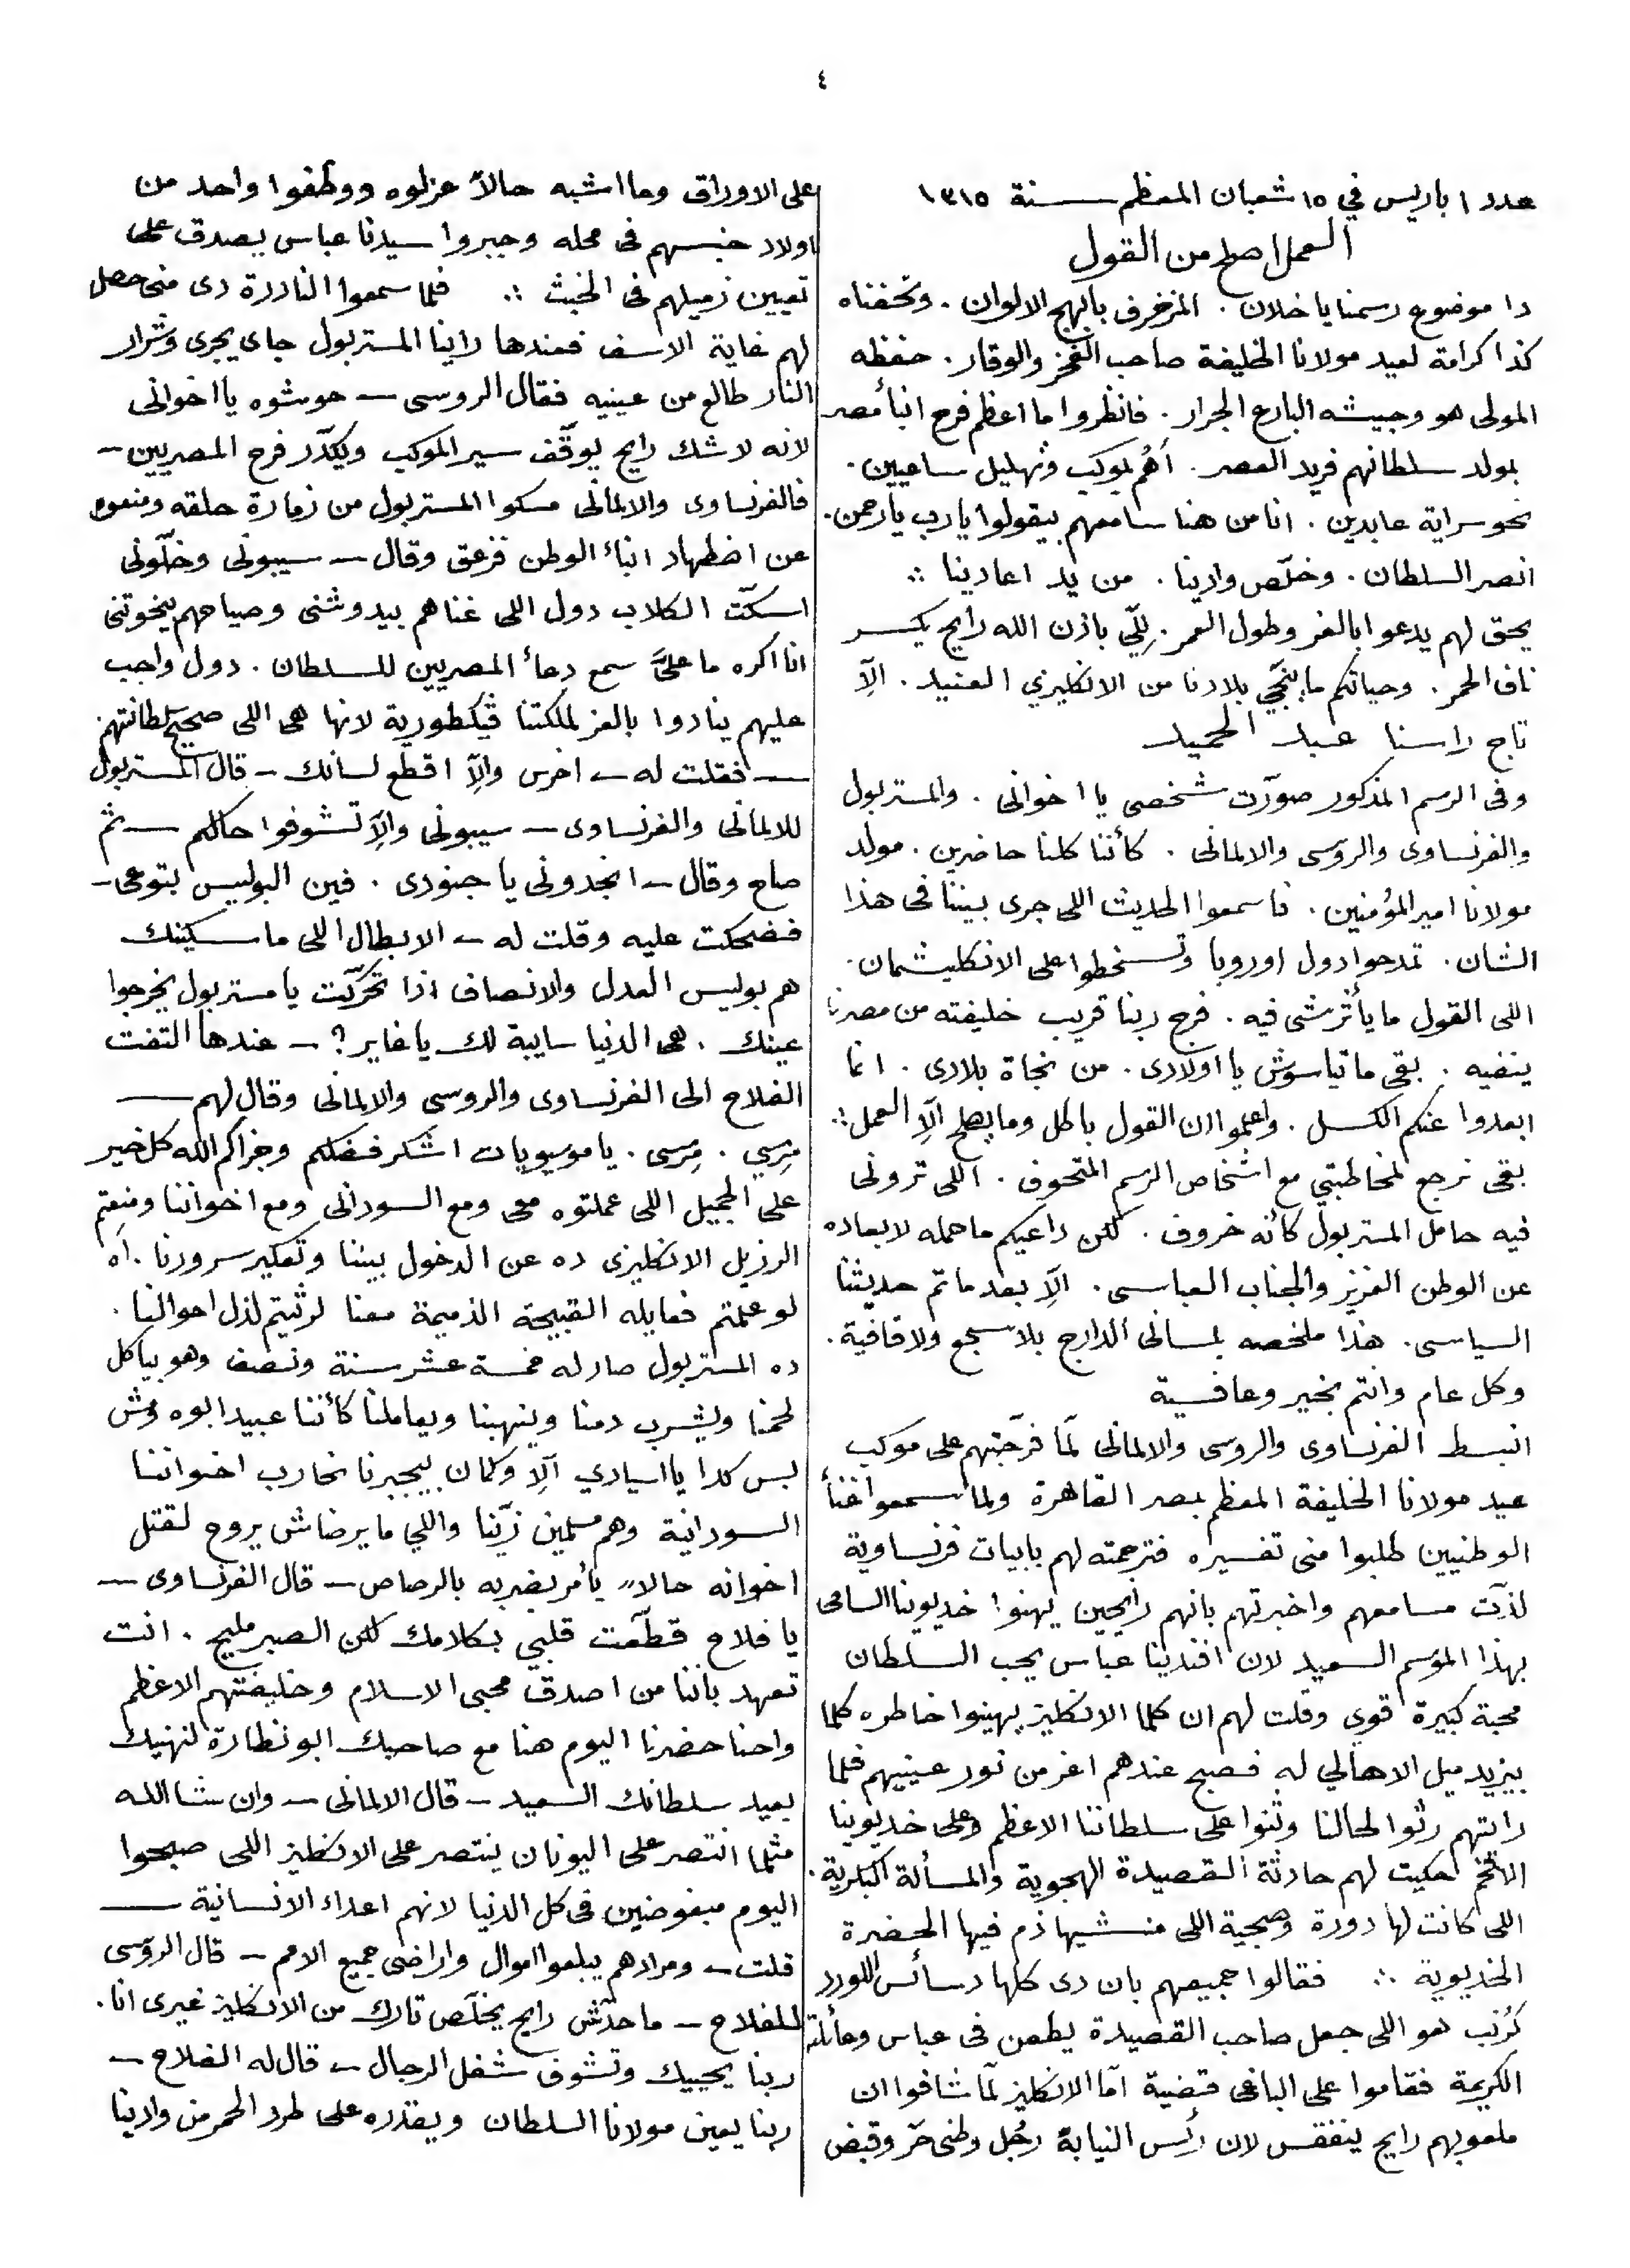 ٤
عدد ١ باريس في ١٥ شعبان المعظم سنة ١٣١٥
العمل اصلح من القول
دا موضوع رسمنا يا خلان . المزخرف بابهج الالوان . وتحفناه
كذا كرامة لعيد مولانا الخليفة صاحب الفخر والوقار . حفظه
المولى هو وجيشه البارع الجرار . فانظروا ما اعظم فرح ابنأ مصر
بمولد سلطانهم فريد العصر . أهُم بموكب وتهليل ساعيين .
نحو سراية عابدين . انا من هنا سامعهم بيقولوا يارب يارحمن .
انصر السلطان . وخلّص وادينا . من يد اعادينا ∴
يحق لهم يدعوا بالعز وطول العمر . لِلّي باذن الله رايح يكسر
ناف الحمر . وحياتكم ما ينجّي بلادنا من الانكليزي العنيد . الّا
تاج راسنا عبد الحميد
وفى الرسم المذكور صورّت شخصى يا اخوانى . والمستربول
والفرنساوى والروسى والالمانى . كأننا كلنا حاضرين . مولد
مولانا امير المؤمنين . فاسمعوا الحديث اللى جرى بيننا فى هذا
الشان . تمدحوا دول اوروبا وتسخطوا على الانكليشمان .
اللى القول ما يأثرشى فيه . فرج ربنا قريب خليفته من مصرنا
ينفيه . بقى ما تياسوش يا اولادى . من نجاة بلادى . انما
ابعدوا عنكم الكسل . واعلموا ان القول باطل وما يصلح الّا العمل ∴
بقى نرجع لمخاطبتي مع اشخاص الرسم المتحوف . اللى ترونى
فيه حامل المستربول كأنه خروف . لكن داعيكم ما حمله لابعاده
عن الوطن العزيز والجناب العباسى . الّا بعد ما تم حديثنا
السياسى . هذا ملخصه بلسانى الدارج بلا سجع ولا قافية .
وكل عام وانتم بخير وعافية
انبسط الفرنساوى والروسى والالمانى لمّا فرّجتهم على موكب
عيد مولانا الخليفة المعظم بمصر القاهرة ولما سمعوا غنأ
الوطنيين طلبوا منى تفسيره فترجمته لهم بابيات فرنساوية
لذّت مسامعهم واخبرتهم بانهم رايحين يهنوا خديوينا السامى
بهذا الموسم السعيد لان افندينا عباس يحب السلطان
محبة كبيرة قوي وقلت لهم ان كلما الانكليز يهينوا خاطره كلما
بيزيد ميل الاهالي له فصبح عندهم اعز من نور عينيهم فلما
رايتهم رثوا لحالنا وثنوا على سلطاننا الاعظم وعلى خديوينا
الافخم حكيت لهم حادثة القصيدة الهجوية والمسألة البكرية .
اللى كانت لها دورة وصجية اللى منشيها ذم فيها الحضرة
الخديوية ∴ فقالوا جميعهم بان دى كلها دسائس اللورد
كُرنب هو اللى جعل صاحب القصيدة يطعن فى عباس وعائلته
الكريمة فقاموا على الباغى قضية امّا الانكليز لمّا شافوا ان
ملعوبهم رايح ينفقس لان رئيس النيابة رجُل وطنى حرّ وقبض
على الاوراق وما اشبه حالاً عزلوه ووظفوا واحد من
اولاد جنسهم فى محله وجبروا سيدنا عباس يصدق على
تعيين زميلهم فى الخبث ∴ فلما سمعوا النادرة دى منى حصل
لهم غاية الاسف فعندها راينا المستربول جاى يجرى وشرار
النار طالع من عينيه فقال الروسى — حوشوه يا اخوانى
لانه لا شك رايح يوقّف سير الموكب ويكدّر فرح المصريين —
فالفرنساوى والالمانى مسكوا المستربول من زمارة حلقه ومنعوه
عن اضطهاد ابناء الوطن فزعق وقال — سيبونى وخلّونى
اسكّت الكلاب دول اللى غناهم بيدوشنى وصياحهم بيخوتنى
انا اكره ما علىّ سمع دعاء المصريين للسلطان . دول واجب
عليهم ينادوا بالعز لملكتنا ڤيكطورية لانها هى اللى صحيح سلطانتهم
— فقلت له — اخرس والّا اقطع لسانك — قال المستربول
للالمانى والفرنساوى — سيبونى والّا تشوفوا حالكم — ثم
صاح وقال — انجدونى يا جنودى . فين البوليس بتوعى —
فضحكت عليه وقلت له — الابطال اللى ماسكينك
هم بوليس العدل والانصاف اذا تحرّكت يا مستربول يخرجوا
عينك . هى الدنيا سايبة لك يا غاير ؟ — عندها التفت
الفلاح الى الفرنساوى والروسى والالمانى وقال لهم —
مِرسي . مِرسى . يا موسيويات اشكر فضلكم وجزاكم الله كل خير
على الجميل اللى عملتوه معى ومع السودانى ومع اخواننا ومنعتم
الرزيل الانكليزى ده عن الدخول بيننا وتعكير سرورنا . آه
لو علمتم فعايله القبيحة الذميمة معنا لرثيتم لذل احوالنا .
ده المستربول صار له خمسة عشر سنة ونصف وهو بياكل
لحمنا ويشرب دمنا وينهبنا ويعاملنا كأننا عبيد ابوه ومش
بس كدا يا اسيادي الّا وكمان بيجبرنا نحارب اخواننا
السودانية وهم مسلمين زيّنا واللي ما يرضاش يروح لقتل
اخوانه حالاً يأمر بضربه بالرصاص — قال الفرنساوى —
يا فلاح قطّعت قلبي بكلامك لكن الصبر مليح . انت
تعهد باننا من اصدق محبى الاسلام وخليفتهم الاعظم
واحنا حضرنا اليوم هنا مع صاحبك ابو نظارة لنهنيك
بعيد سلطانك السعيد — قال الالمانى — وان شا الله
مثلما انتصر على اليونان ينتصر على الانكليز اللى صبحوا
اليوم مبغوضين فى كل الدنيا لانهم اعداء الانسانية —
قلت — ومرادهم يبلعوا اموال واراضى جميع الامم — قال الروسى
للفلاح — ما حدّش رايح يخلّص تارك من الانكليز غيرى انا .
ربنا يحييك وتشوف شغل الرجال — قال له الفلاح —
ربنا يعين مولانا السلطان ويقدره على طرد الحمر من وادينا